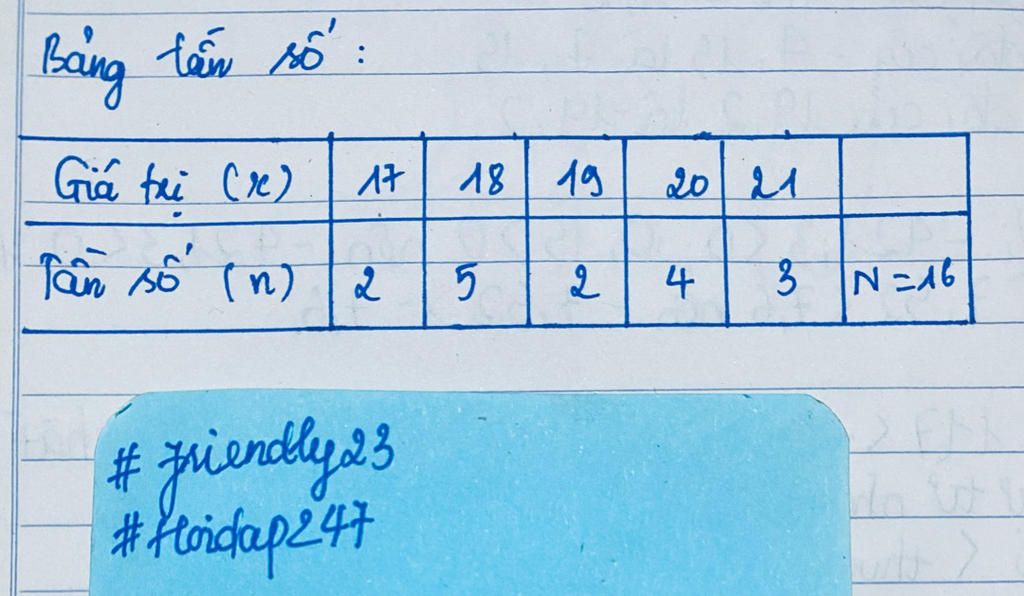 Bảng tần số :
Giá trị (x) 17 18 19 20 21
Tần số (n) 2 5 2 4 3 N = 16
# friendly23
# Hoidap247